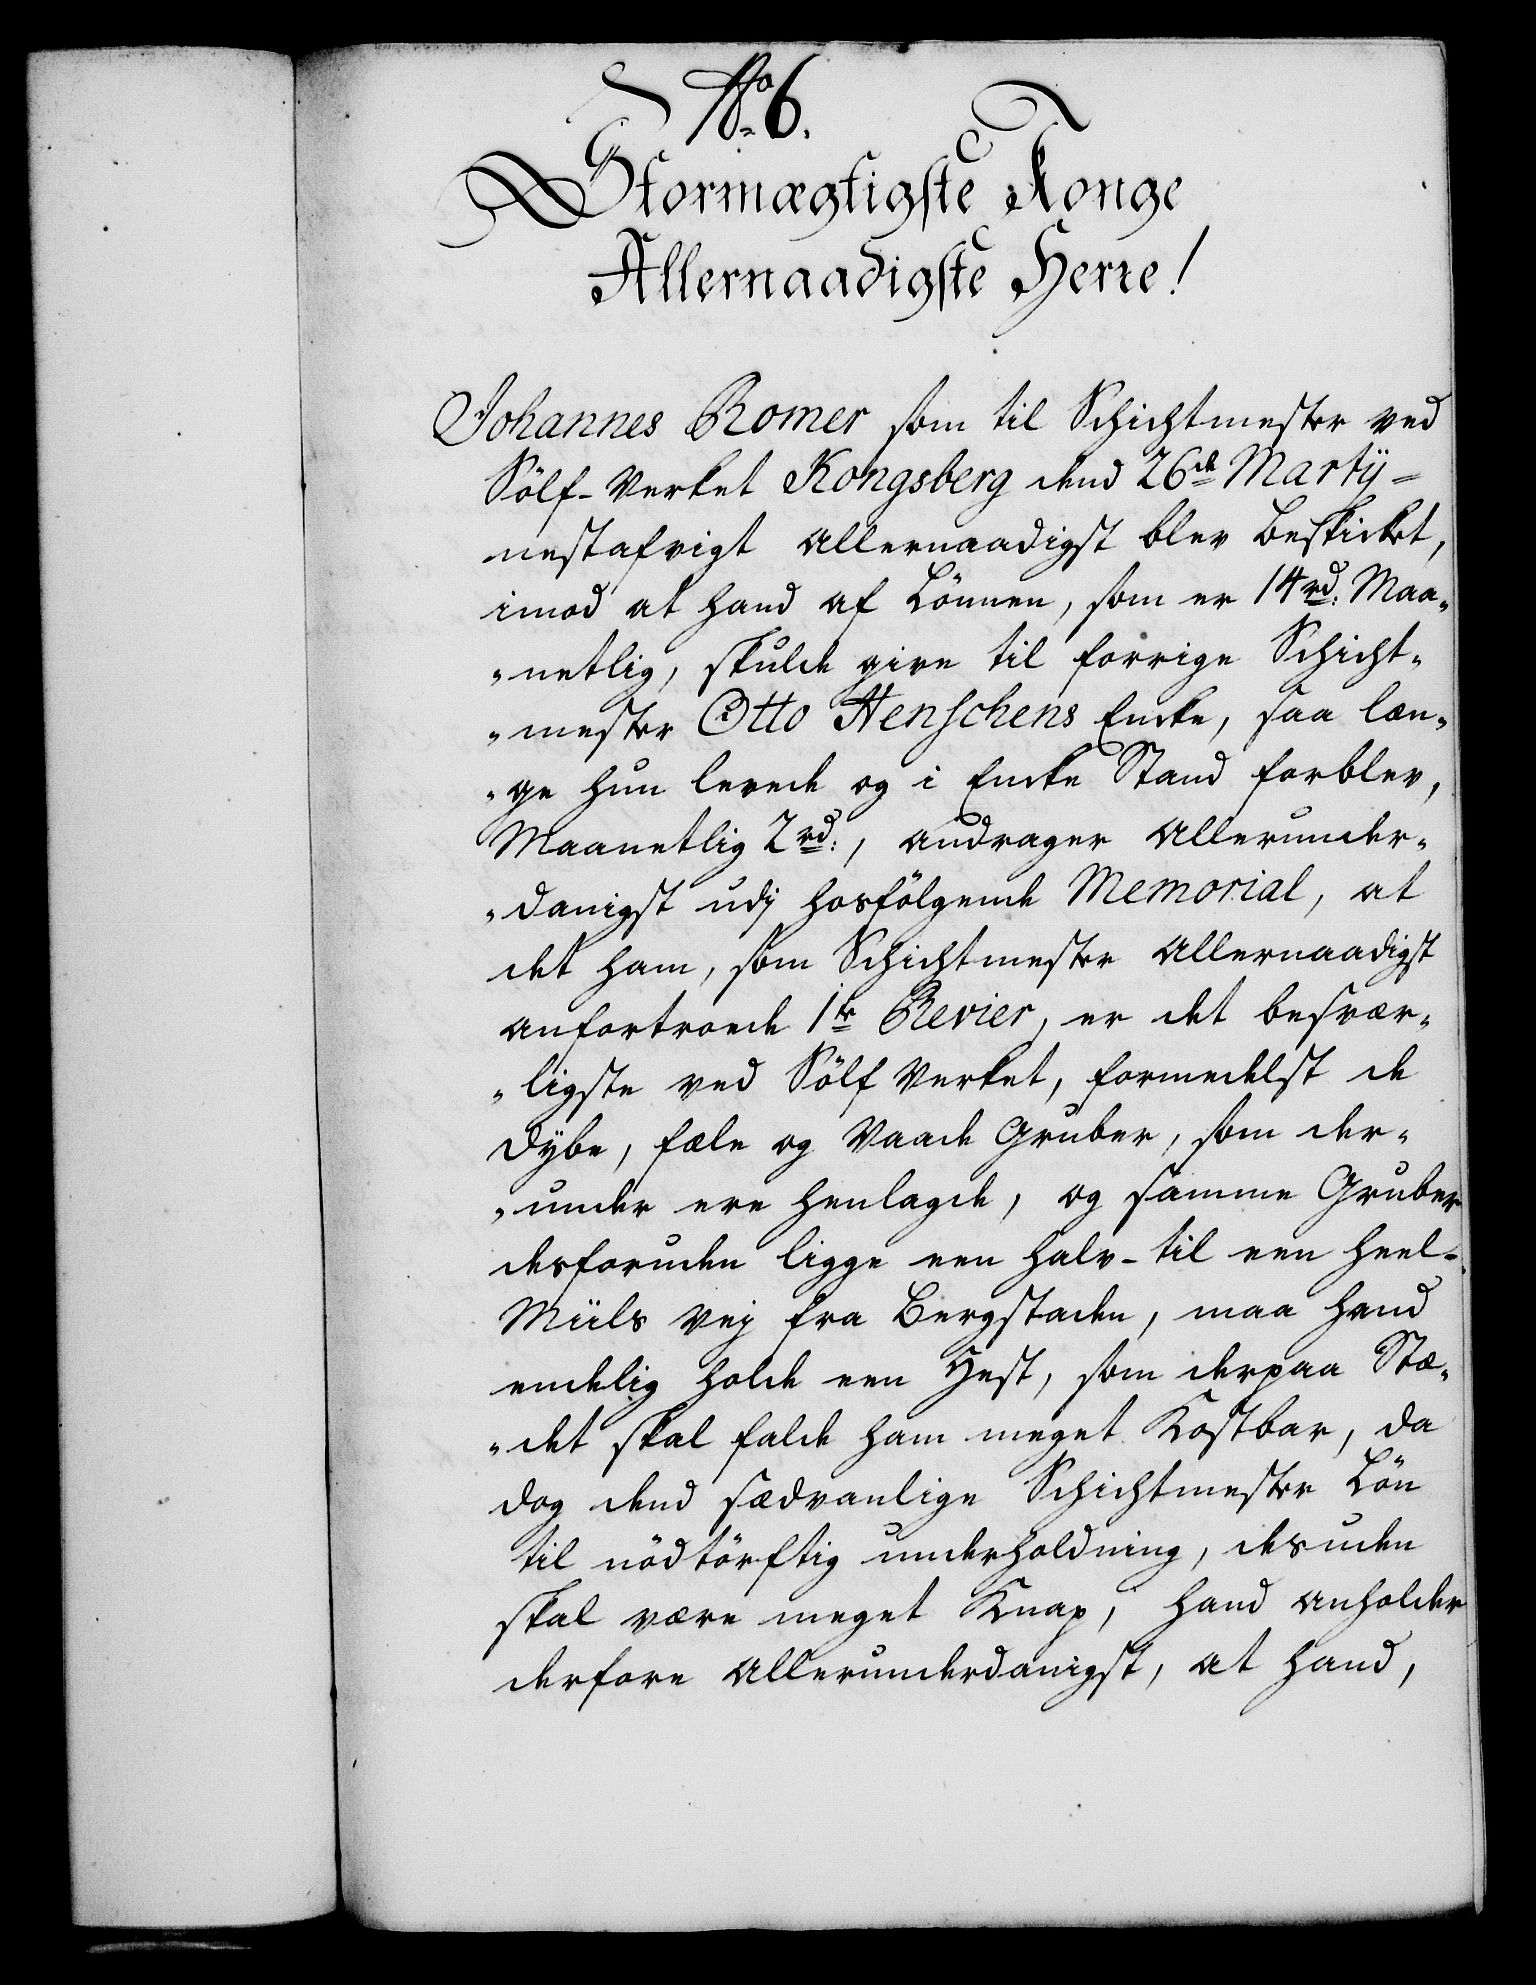 No 6.
Stormægtigste Konge
Allernaadigste Herre!
Johannes Romer som til Schichtmester ved
Sölf-Verket Kongsberg dend 26de Martÿ
nestafvigt allernaadigst blev beskicket,
imod at hand af Lönnen, som er 14 rd: Maa„
„netlig, skulde give til forrige Schicht„
„mester Otto Henschens Encke, saa læn„
„ge hun levede og i Encke Stand forblev,
Maanetlig 2 rd:, andrager allerunder„
„danigst udj hosfölgende Memorial, at
det ham, som Schichtmester allernaadigst
anfortroede 1te Revier, er det besvær„
„ligste ved Sölf Verket, formedelst de
dÿbe, fæle og vaade Gruber, som der„
„under ere henlagde, og samme Gruber
desforuden ligge een halv- til een heel-
Miils vej fra Bergstaden, maa hand
endelig holde een Hest, som derpaa Stæ„
„det skal falde ham meget Kostbar, da
dog dend sædvanlige Schichtmester Lön
til nödtörftig underholdning, desuden
skal være meget Knap, hand anholder
derfore allerunderdanigst, at hand,